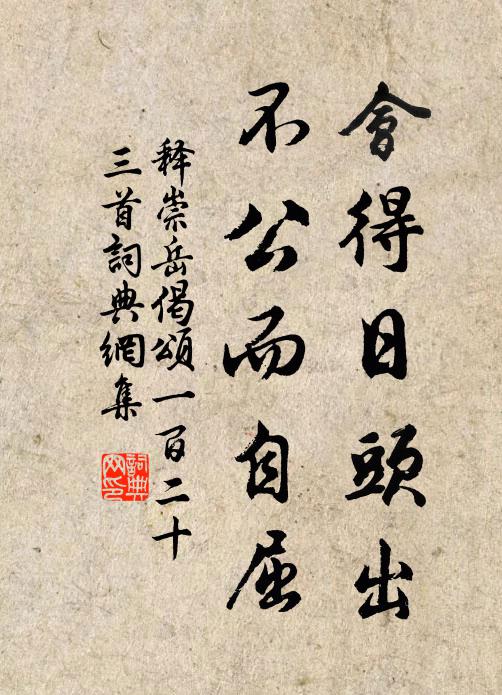 會得日頭出
不公而自屈
釋崇岳偈頌一百二十
三首詞典網集
詞典
网印